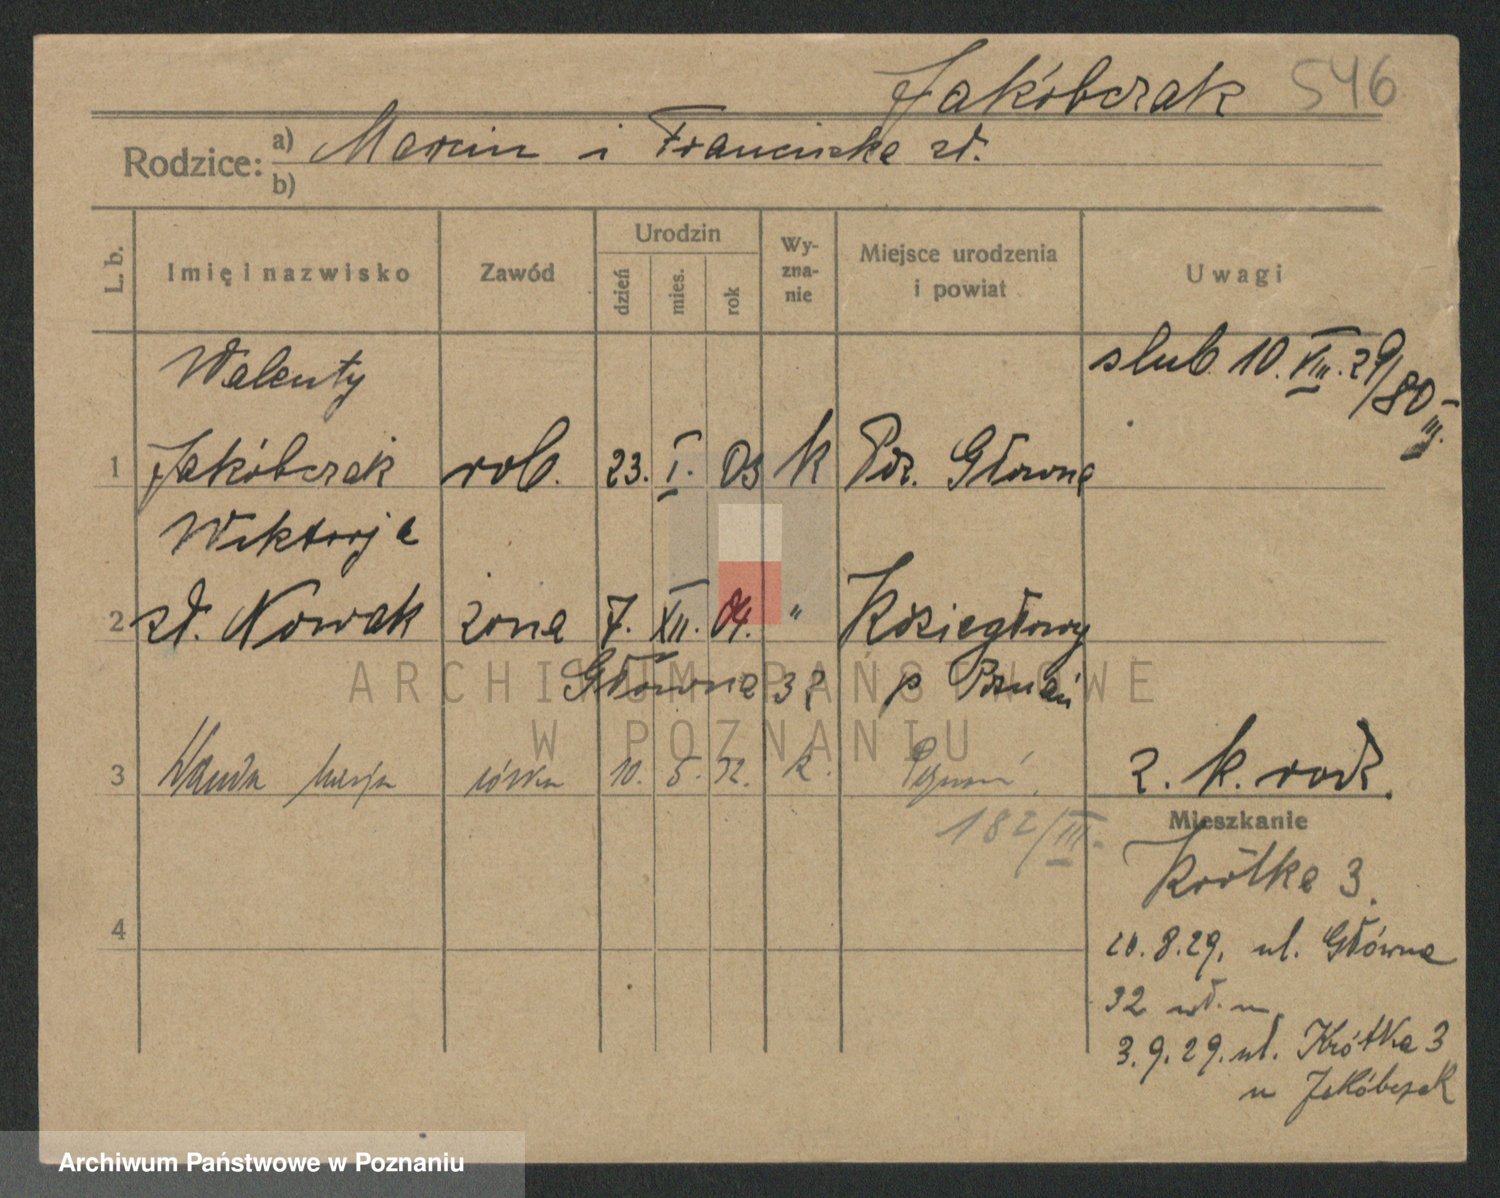 Jakóbczak 546
Rodzice: a) Marcin i Franciszka zł.
b)
L. b. Imię i nazwisko Zawód Urodzin dzień mies. rok Wy-zna-nie Miejsce urodzenia i powiat Uwagi
Walenty ślub. 10. VIII. 29/80 III.
1 Jakóbczak rob. 23. I. 03 k Poz. Główna
Wiktorja
2 zł. Nowak żona 7. XII. 04. " Koziegłowy
Główna 32 p Poznań
3 Wanda Marja córka 10. 5. 32. k. Poznań. 2. k. rodz.
182/III.
Mieszkanie
Krótka 3.
4
20.8.29. ul. Główna
32 wł. m.
3.9.29. ul. Krótka 3
u Jakóbczak
ARCHIWUM PAŃSTWOWE
W POZNANIU
Archiwum Państwowe w Poznaniu